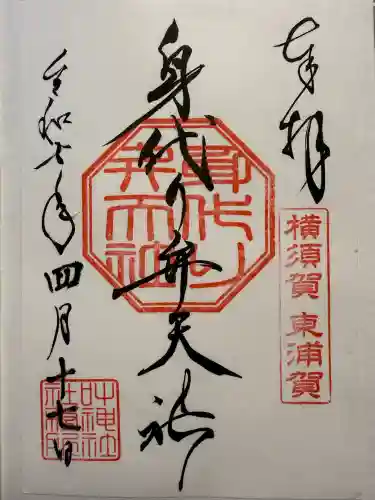 奉拝
横須賀 東浦賀
身代り弁天社
身代り
弁天社
令和七年四月十七日
叶神社
社務所